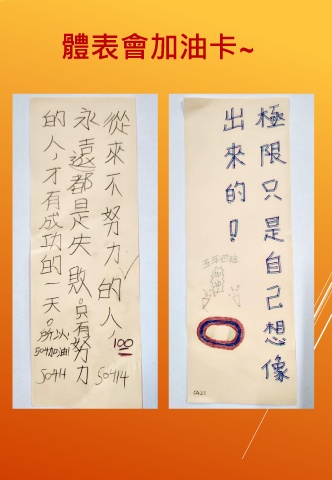 體表會加油卡~
從來不努力的人，
永遠都是失敗。只有努力
的人，才有成功的一天。
所以，
504加油
100
50414
50414
極限只是自己想像
出來的！
五年四班